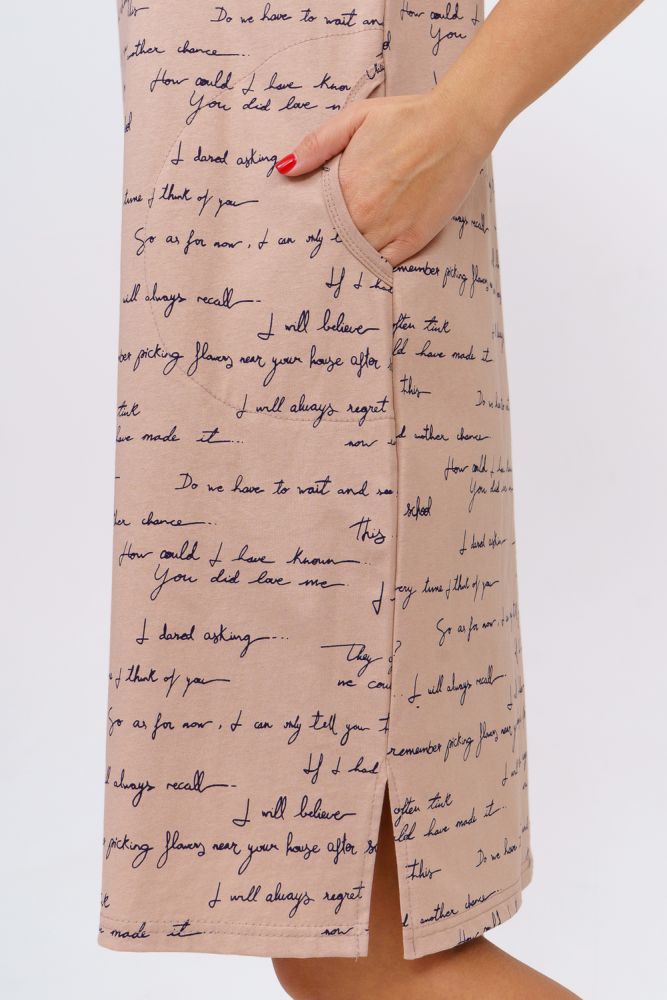 this
Do we have to wait an
other chance...
How could I have know
You did love m
I dared asking
time I think of you
So as for now, I can only t
If I had
will always recall
I will believe
ber picking flowers near your house after s
I will always regret
tink
have made it...
now
Do we have to wait and see
ther chance...
This
How could I have known...
You did love me
I dared asking...
They
I think of you
me cou
So as for now, I can only tell you I
If I had
I always recall
I will believe
picking flowers near your house after s
I will always regret
made it...
now
How could I
You
always recall
remember picking flowers
often tink
ld have made it
this
Do we have
d another chance
How could I ha
You did
school
I dared askin
very time I think of you
So as for now, I
I will always recall...
remember picking flowers near you
often tink
ld have made it...
this
Do we have t
d another chance...
How could